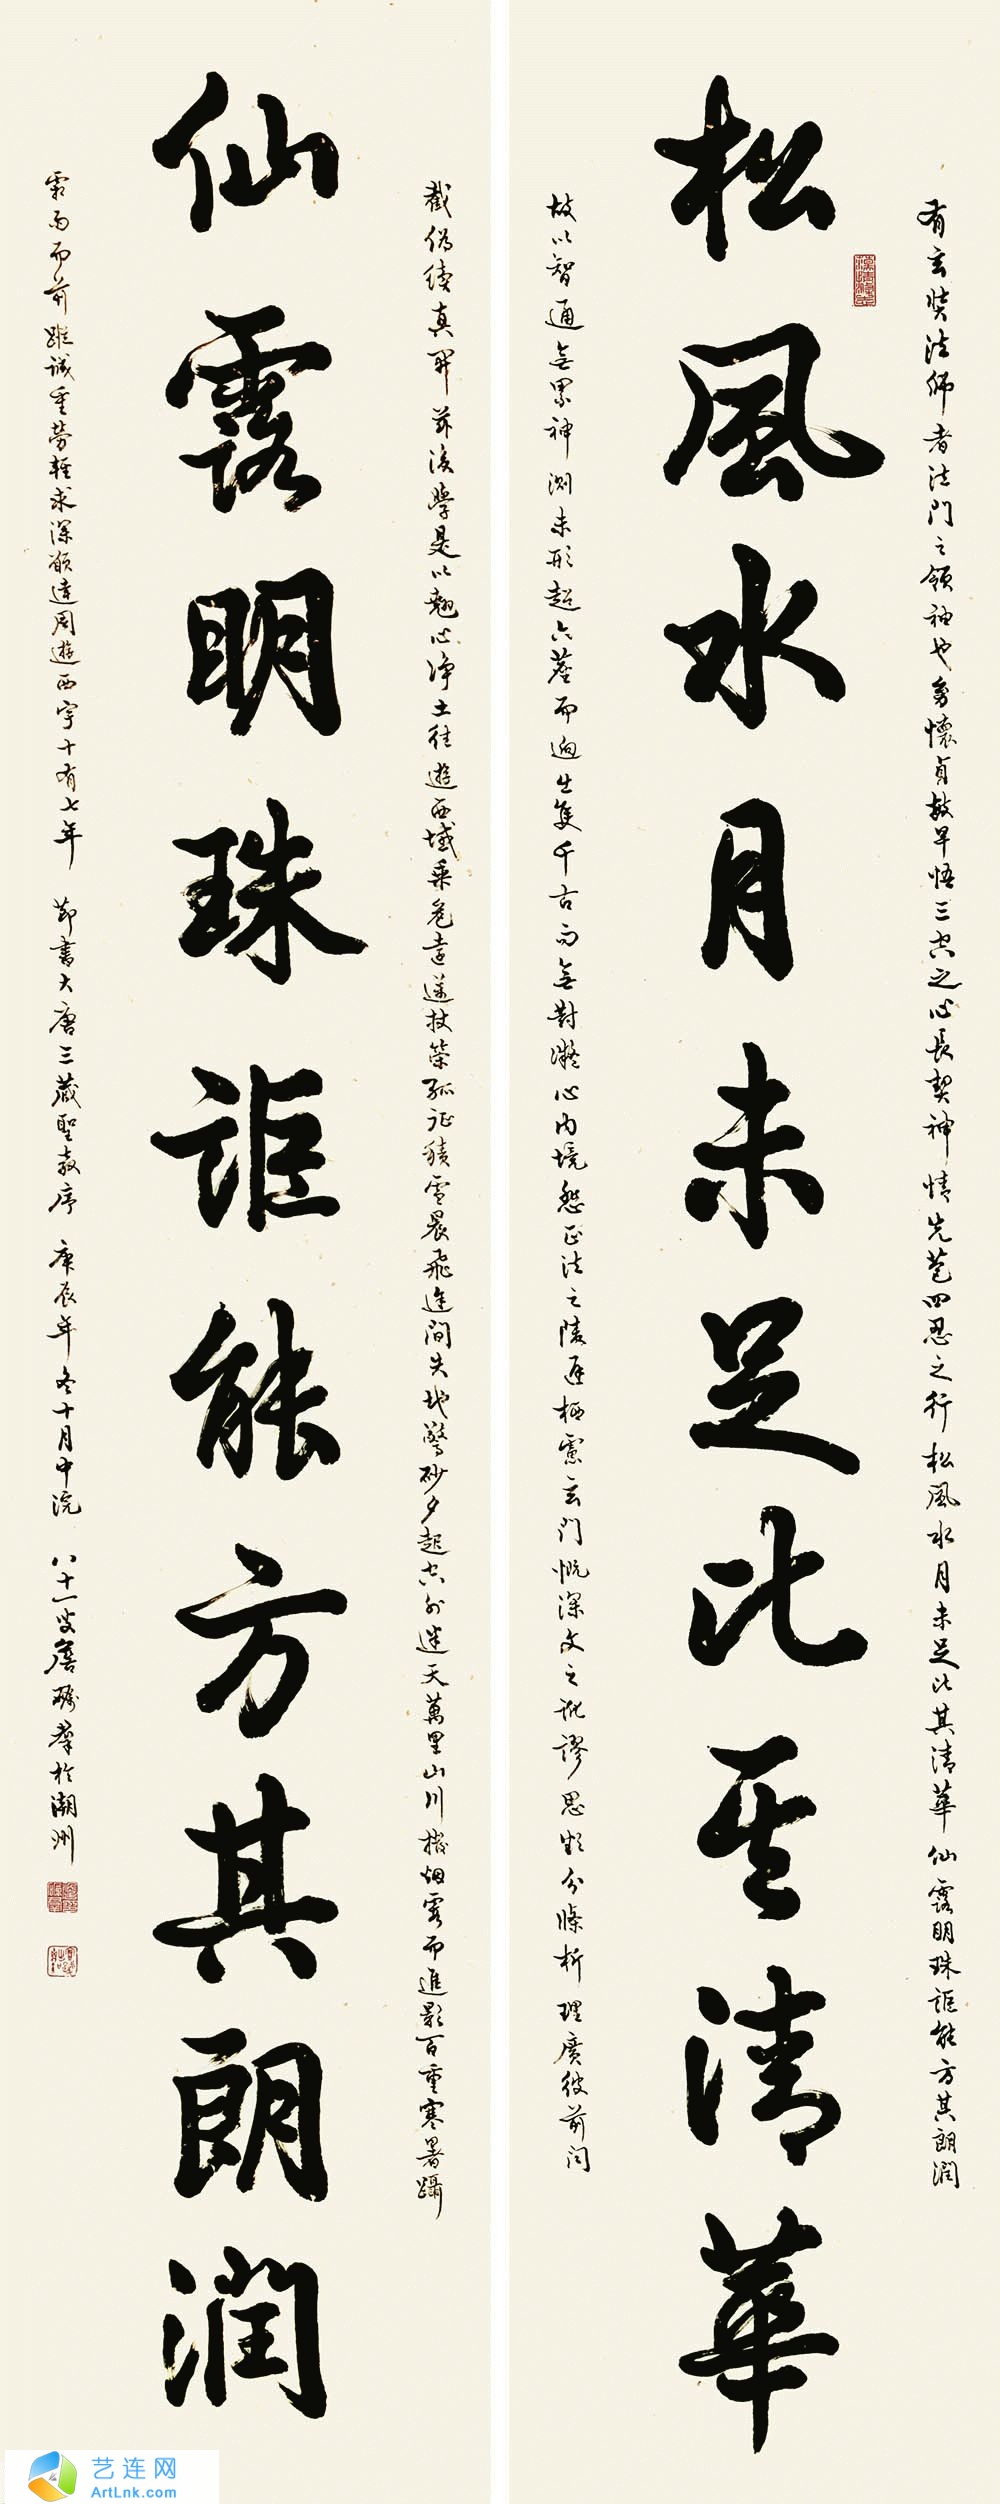 有玄奘法師者法門之領袖也幼懷貞敏早悟三空之心長契神情先苞四忍之行松風水月未足比其清華仙露明珠詎能方其朗潤
松風水月未足比其清華
故以智通無累神測未形超六塵而迥出隻千古而無對凝心內境悲正法之陵遲栖慮玄門慨深文之訛謬思欲分條析理廣彼前聞
截偽續真開茲後學是以翹心淨土往遊西域乘危遠邁杖策孤征積雪晨飛途間失地驚砂夕起空外迷天萬里山川撥烟霞而進影百重寒暑躡
仙露明珠詎能方其朗潤
霜雨而前蹤誠重勞輕求深願達周遊西宇十有七年 節書大唐三藏聖教序 庚辰年冬十月中浣 八十一叟詹礪羣於潮州
艺连网
ArtLnk.com